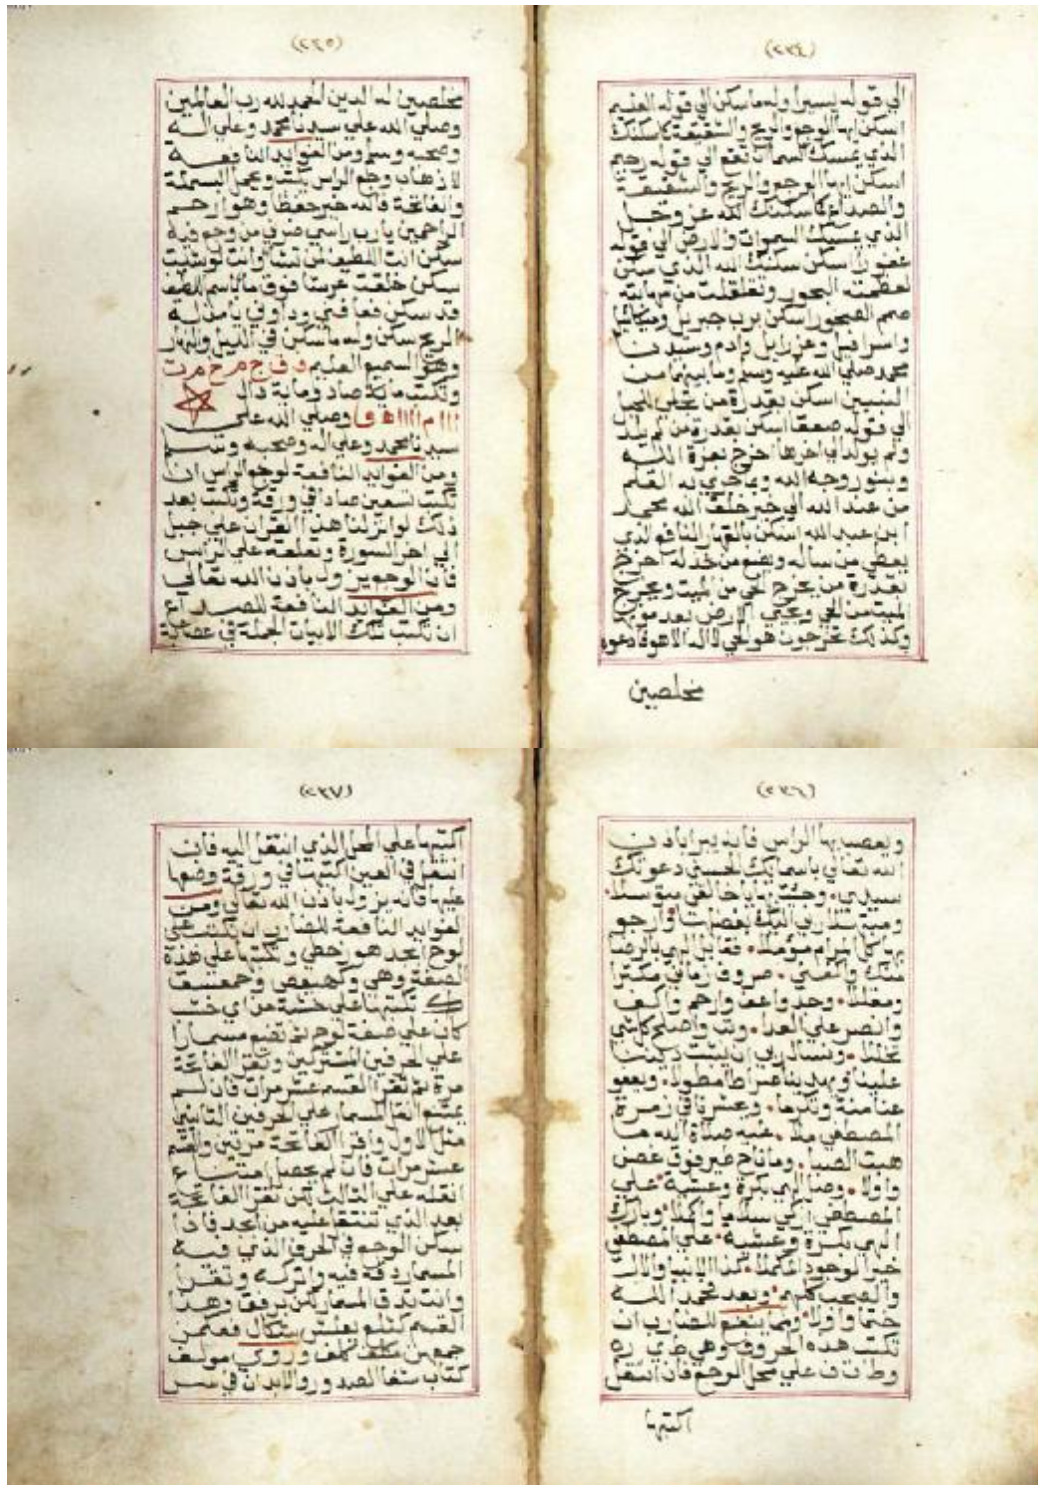 (٢٣٤)
الي قوله يسيرا وله ما سكن الي قوله العليم
اسكن ايها الوجع والريح والشقيقة كما سكنك
الذي يمسك السما ان تقع الي قوله رحيم
اسكن ايها الوجع والريح والشقيقة
والصداع كما سكنك الله عز وجل
الذي يمسك السموات والارض الي قوله
غفورا اسكن سكنتك الله الذي سكن
لعظمته البحور وتقلقلت من مهابته
صم الصخور اسكن برب جبريل وميكائيل
واسرافيل وعزرايل وادم وسيدنا
محمد صلي الله عليه وسلم وما بينهما من
النبيين اسكن بقدرة من تجلي للجبل
الي قوله صعقا اسكن بقدرة من لم يلد
ولم يولد الي اخرها اخرج بعزة الله
وبنور وجه الله وبما جري به القلم
من عند الله الي خير خلق الله محمد
ابن عبد الله اسكن بالقهار النافع الذي
يعطي من ساله ويمنع من خذله اخرج
بقدرة من يخرج الحي من الميت ويخرج
الميت من الحي ويحيي الارض بعد موتها
وكذلك تخرجون هو الحي لا اله الا هو فادعوه
مخلصين
(٢٣٥)
مخلصين له الدين الحمد لله رب العالمين
وصلي الله علي سيدنا محمد وعلي اله
وصحبه وسلم ومن الفوايد النافعة
لاذهاب وجع الراس يكتب ويحمل البسملة
والفاتحة فالله خير حفظا وهو ارحم
الراحمين يا رب راسي ضرني من وجع فيه
سكن انت اللطيف لمن تشا وانت لو شئت
سكن خلقت عرشا فوق ما باسم لطيف
قد سكن فعافني وداوني يا من له
الريح سكن وله ما سكن في الليل والنهار
وهو السميع العليم و ف ج م ح م ر ت
وتكتب ماية صاد وماية دال
ا ا ا م ا ا ا ا ه ق وصلي الله علي
سيدنا محمد وعلي اله وصحبه وسلم
ومن الفوايد النافعة لوجع الراس ان
تكتب تسعين صادا في ورقة وتكتب بعد
ذلك لو انزلنا هذا القران علي جبل
الي اخر السورة وتعلقه علي الراس
فان الوجع يزول باذن الله تعالي
ومن الفوايد النافعة للصداع
ان تكتب تلك الابيات الجملة في عصابة
(٢٣٦)
ويعصب بها الراس فانه يبرا باذن
الله تعالي باسمايك الحسني دعوتك
سيدي وجئت بها يا خالقي متوسلا
ربي اليك بفضلها وارجو
بها كل المرام مؤملا فقابل الهي بالرضا
منك واكفني صروف زماني مكثرا
ومقللا وجد واعف وارحم واكف
وانصر علي العدا وتب واصلح كل شي
تخللا ونسال ربي ان يثبت ديننا
علينا ويهدينا صراطا مطولا ويعفو
عنا منة وتكرما وحشرنا في زمرة
المصطفي ملا عليه صلاة الله ما
هبت الصبا وما ناح طير فوق غصن
واولا وصل الهي بكرة وعشية علي
المصطفي ازكي سلاما واكملا وبارك
الهي بكرة وعشية علي المصطفي
خير الوجود اكملا كذا الانبيا والال
والصحب كلهم وبعد فحمد الله
ختما واولا ومما ينفع للضارب ان
تكتب هذه الحروف وهي
علي محل الوجع فان انتقل
اكتبها
(٢٣٧)
اكتبها علي المحل الذي انتقل اليه فان
انتقل في العين اكتبها في ورقة وضعها
عليها فانه يزول باذن الله تعالي ومن
الفوايد النافعة للضارب ان تكتب علي
لوح ابجد هوز حطي وتكتبها علي هذه
الصفة وهي وكهيعص وحمعسق
تكتبها علي خشبة من اي خشب
كان علي صفة لوح ثم تضع مسمارا
علي الحرفين المشتركين وتقرا الفاتحة
مرة ثم تقرا القسم عشر مرات فان لم
يمتنع انقل المسمار علي الحرفين الثانيين
مثل الاول واقرا الفاتحة مرتين والقسم
عشر مرات فان لم يحصل امتناع
انقله علي الثالث ثم تقرا الفاتحة
بعد الذي تنتقل عليه من ابجد فاذا
سكن الوجع في الحرف الذي فيه
المسمار دقه فيه واتركه وتقرا
وانت تدق المسمار لكن برفق وهذا
القسم
وروي مولف
كتاب شفا الصدور والابدان في سر